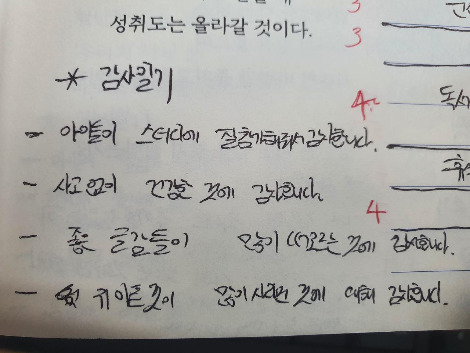 성취도는 올라갈 것이다.
3
3
* 감사일기
4
독서
- 아이들이 스터디에 잘 참가해줘서 감사합니다.
- 사고 없이 건강한 것에 감사합니다.
4
- 좋은 글감들이 많이 떠오르는 것에 감사합니다.
- 많이 사라진 것에 대해 감사합니다.